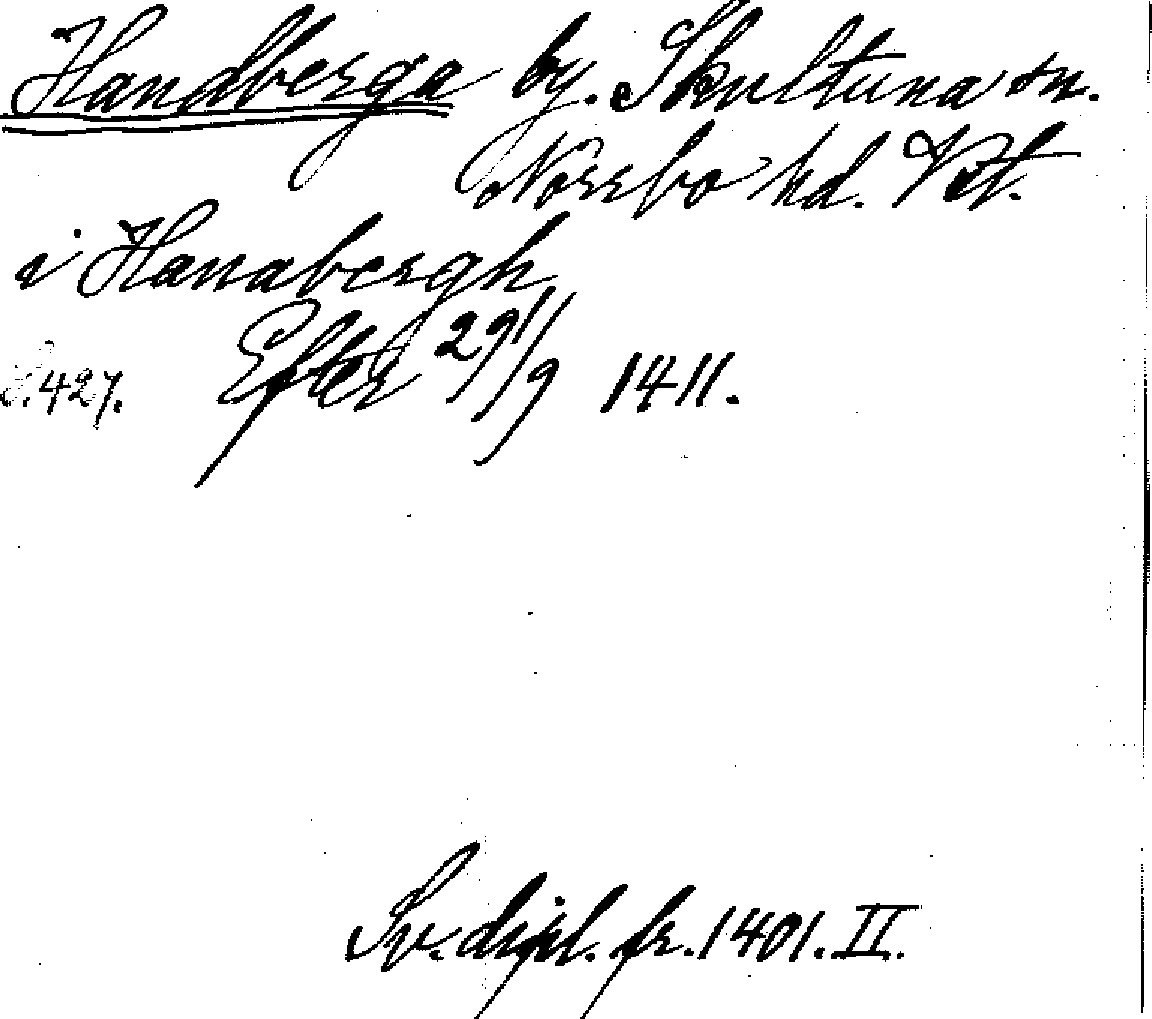 Handberga by. Skultuna sn.
Norrbo hd. Vstm.
i Hanabergh
S. 427. Efter 29/9 1411.
Sv. dipl. fr. 1401. II.